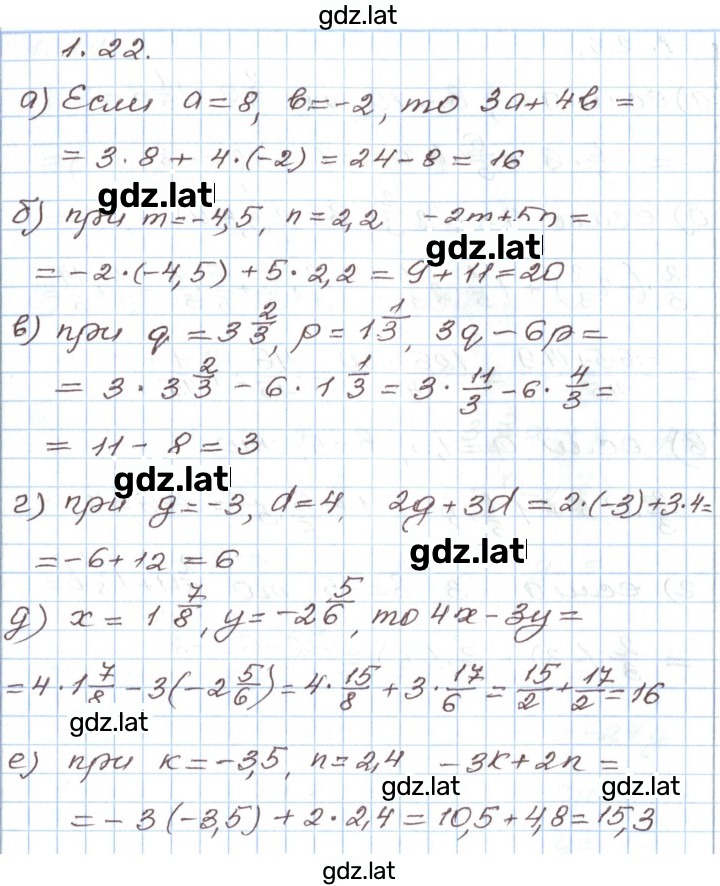 gdz.lat
1.22.
а) Если a = 8, b = -2, то 3a + 4b =
= 3 · 8 + 4 · (-2) = 24 - 8 = 16
gdz.lat
б) при m = -4,5, n = 2,2 -2m + 5n =
gdz.lat
= -2 · (-4,5) + 5 · 2,2 = 9 + 11 = 20
в) при q = 3 2/3, p = 1 1/3, 3q - 6p =
= 3 · 3 2/3 - 6 · 1 1/3 = 3 · 11/3 - 6 · 4/3 =
= 11 - 8 = 3
gdz.lat
г) при g = -3, d = 4, 2g + 3d = 2 · (-3) + 3 · 4 =
gdz.lat
= -6 + 12 = 6
д) x = 1 7/8, y = -2 5/6, то 4x - 3y =
= 4 · 1 7/8 - 3(-2 5/6) = 4 · 15/8 + 3 · 17/6 = 15/2 + 17/2 = 16
gdz.lat
е) при k = -3,5, n = 2,4 -3k + 2n =
gdz.lat gdz.lat
= -3(-3,5) + 2 · 2,4 = 10,5 + 4,8 = 15,3
gdz.lat